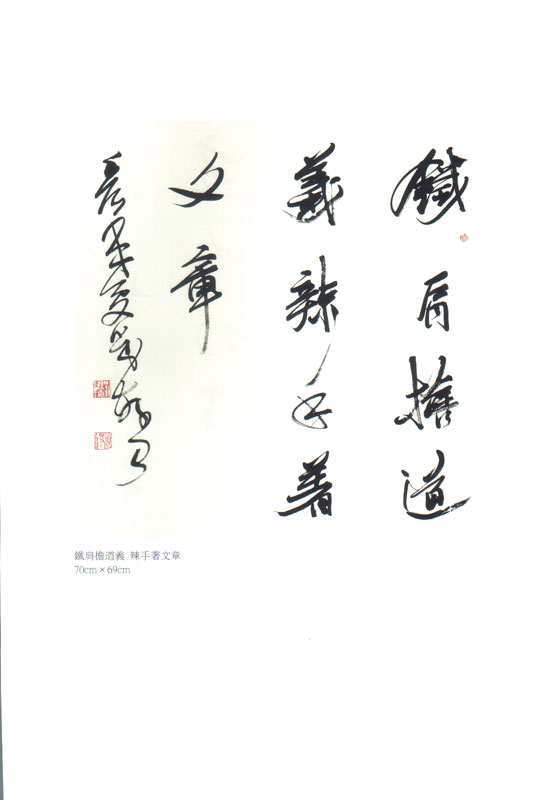 鐵肩擔道
義辣手著
文章
鐵肩擔道義 辣手著文章
70cm×69cm